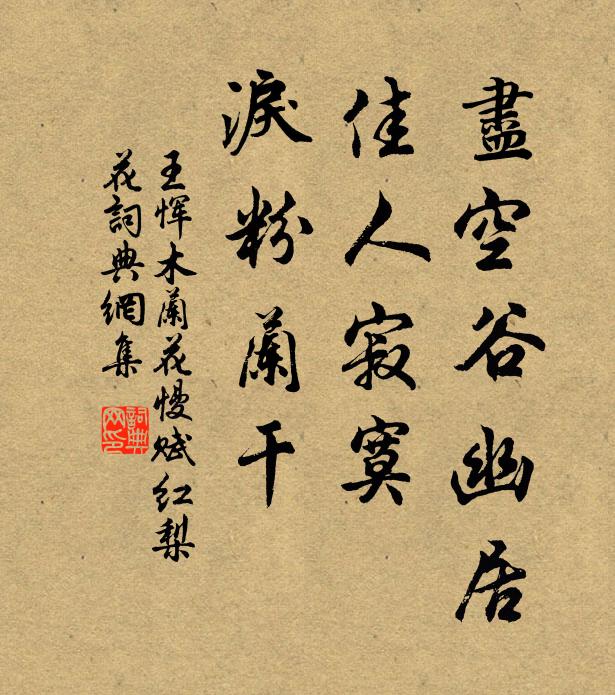 盡空谷幽居
佳人寂寞
淚粉蘭干
王惲木蘭花慢賦红梨
花詞典網集
詞典网印